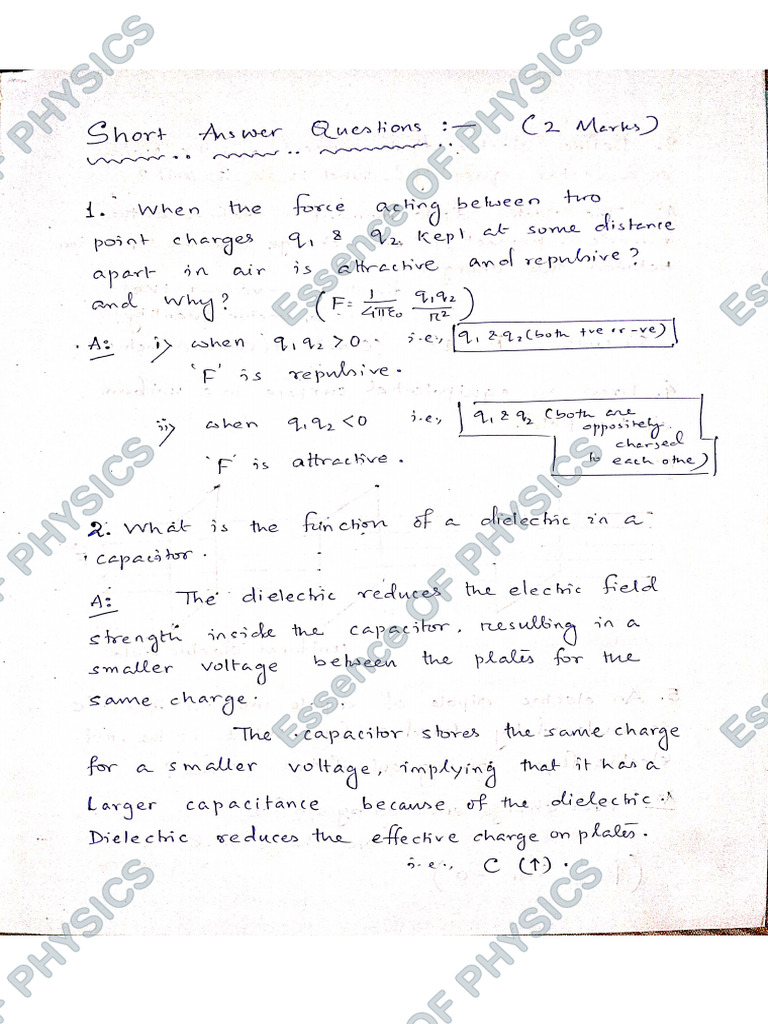 Short Answer Questions :- (2 Marks)
1. When the force acting between two
point charges q₁ & q₂ kept at some distance
apart in air is attractive and repulsive?
and why? (F = 1/4πε₀ q₁q₂/r²)
A: i) when q₁q₂ > 0 i.e., q₁ & q₂ (both +ve or -ve)
'F' is repulsive.
ii) when q₁q₂ < 0 i.e., q₁ & q₂ (both are
oppositely
charged
to each othe)
'F' is attractive.
2. What is the function of a dielectric in a
capacitor.
A: The dielectric reduces the electric field
strength inside the capacitor, resulting in a
smaller voltage between the plates for the
same charge.
The capacitor stores the same charge
for a smaller voltage, implying that it has a
Larger capacitance because of the dielectric.
Dielectric reduces the effective charge on plates.
i.e., C (↑).
Essence OF PHYSICS
Essence OF PHYSICS
OF PHYSICS
OF PHYSICS
OF PHYSICS
OF PHYSICS
Ess
Ess